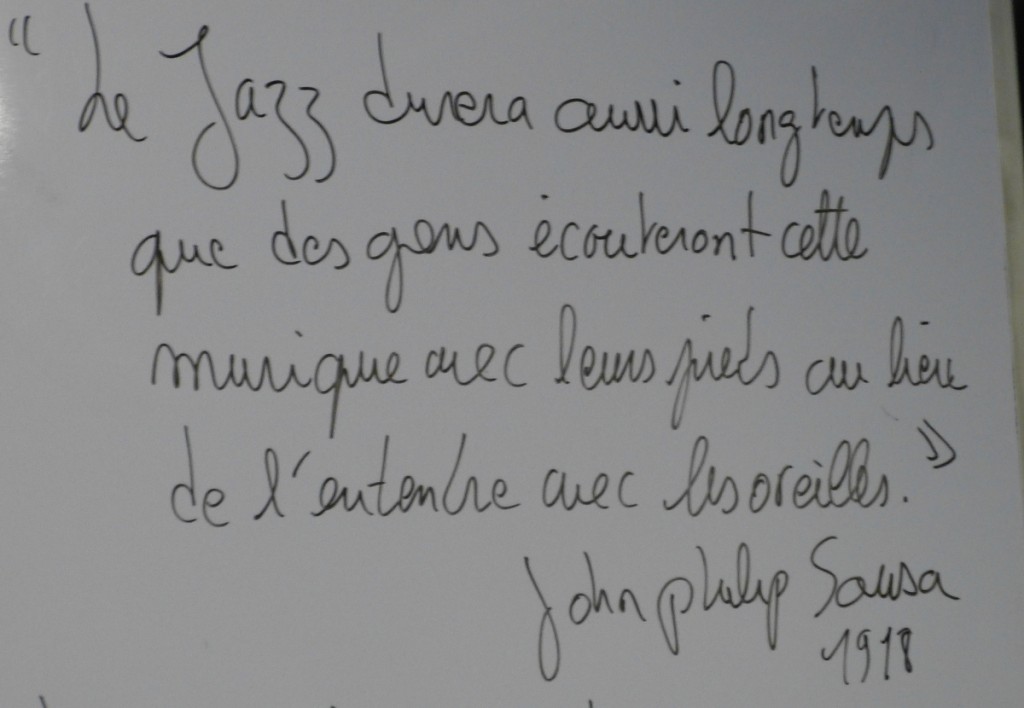 "Le Jazz durera aussi longtemps
que des gens écouteront cette
musique avec leurs pieds au lieu
de l'entendre avec les oreilles."
John philip Sousa
1918